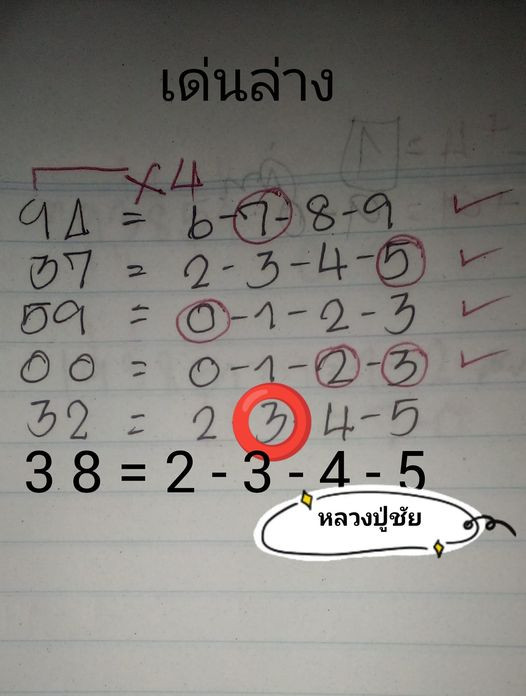 เด่นล่าง
×4
94 = 6-7-8-9
37 = 2-3-4-5
59 = 0-1-2-3
00 = 0-1-2-3
32 = 2 3 4-5
38 = 2-3-4-5
หลวงปู่ชัย